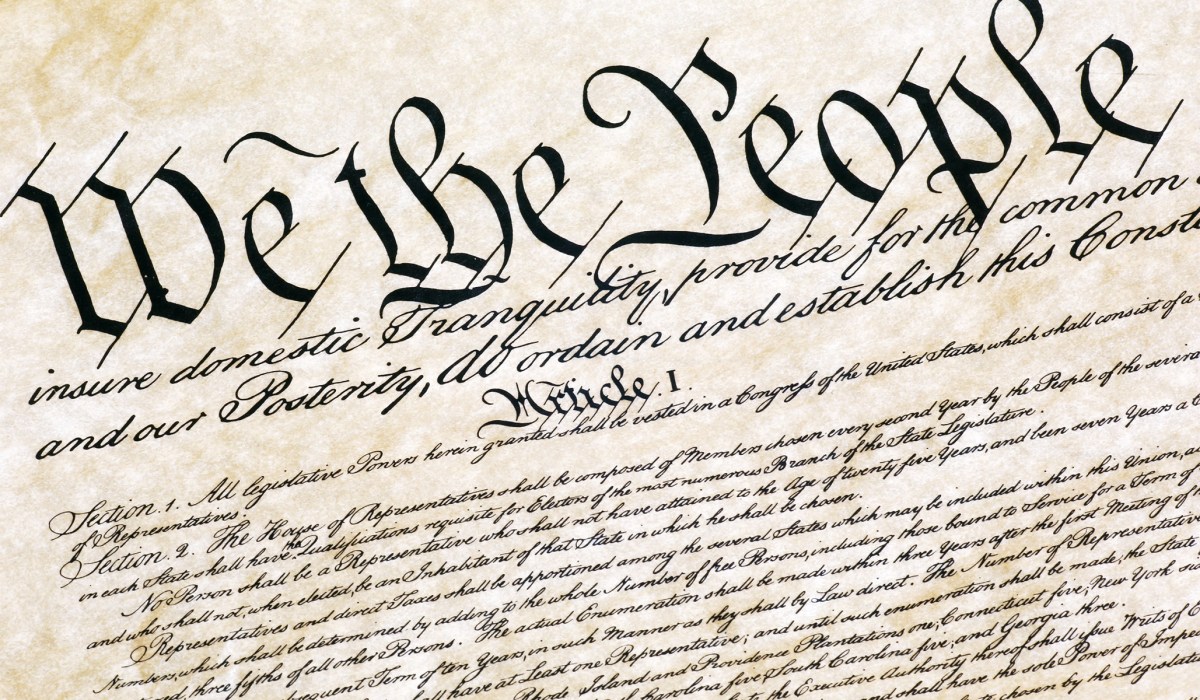 We the People
insure domestic Tranquility, provide for the common
and our Posterity, do ordain and establish this Const
Article. I.
Section. 1. All legislative Powers herein granted shall be vested in a Congress of the United States, which shall consist of a
of Representatives.
Section. 2. The House of Representatives shall be composed of Members chosen every second Year by the People of the several
in each State shall have the Qualifications requisite for Electors of the most numerous Branch of the State Legislature.
No Person shall be a Representative who shall not have attained to the Age of twenty five Years, and been seven Years a
and who shall not, when elected, be an Inhabitant of that State in which he shall be chosen.
Representatives and direct Taxes shall be apportioned among the several States which may be included within this Union,
Numbers, which shall be determined by adding to the whole Number of free Persons, including those bound to Service for a Term of
three fifths of all other Persons. The actual Enumeration shall be made within three Years after the first Meeting of
Term of ten Years, in such Manner as they shall by Law direct. The Number of
have at Least one Representative; and until such enumeration shall be made, the State
Rhode Island and Providence Plantations one, Connecticut five, New York
Carolina five, South Carolina five, and Georgia three.
the Executive Authority thereof shall issue Writs of
and shall have the sole Power of
chosen by the